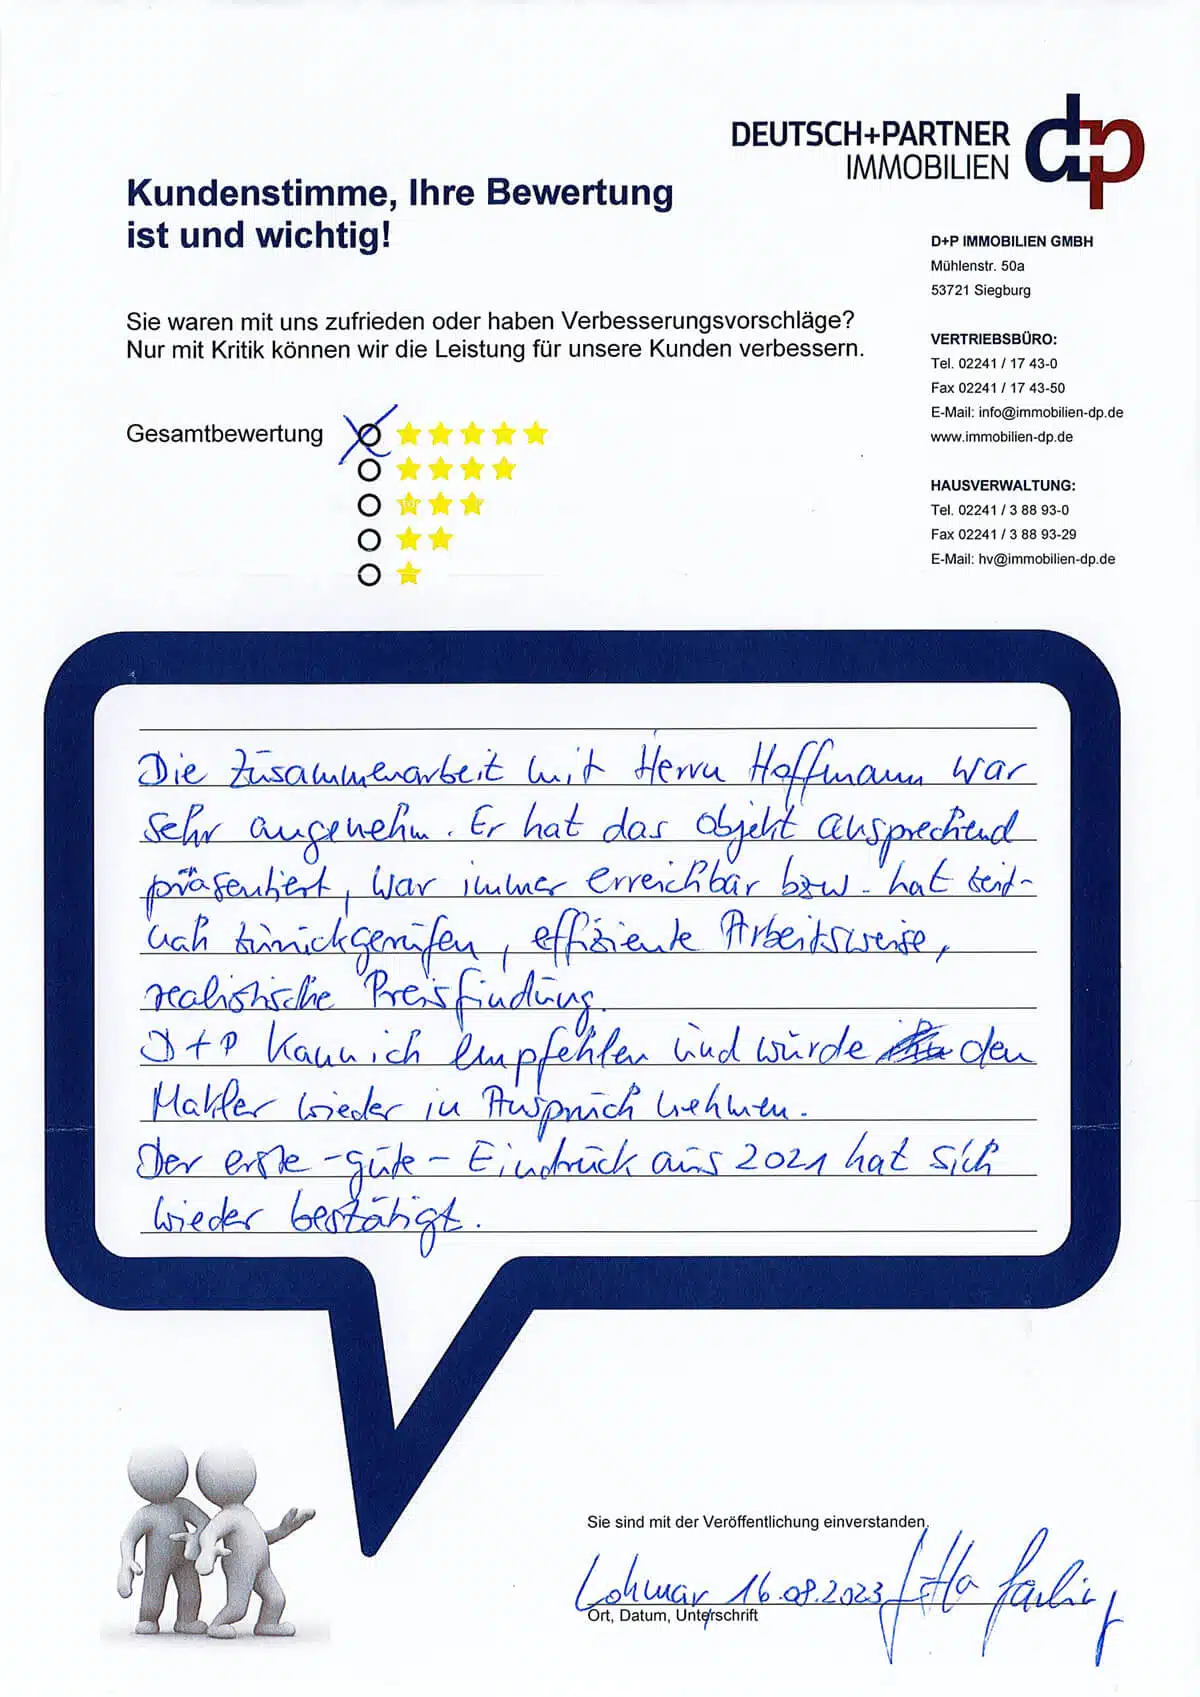 DEUTSCH+PARTNER
IMMOBILIEN
dp
Kundenstimme, Ihre Bewertung
ist und wichtig!
D+P IMMOBILIEN GMBH
Mühlenstr. 50a
53721 Siegburg
Sie waren mit uns zufrieden oder haben Verbesserungsvorschläge?
Nur mit Kritik können wir die Leistung für unsere Kunden verbessern.
VERTRIEBSBÜRO:
Tel. 02241 / 17 43-0
Fax 02241 / 17 43-50
E-Mail: info@immobilien-dp.de
www.immobilien-dp.de
Gesamtbewertung
HAUSVERWALTUNG:
Tel. 02241 / 3 88 93-0
Fax 02241 / 3 88 93-29
E-Mail: hv@immobilien-dp.de
Die Zusammenarbeit mit Herrn Hoffmann war
sehr angenehm. Er hat das Objekt ansprechend
präsentiert, war immer erreichbar bzw. hat zeit-
nah zurückgerufen, effiziente Arbeitsweise,
realistische Preisfindung.
D+P kann ich empfehlen und würde den
Makler wieder in Anspruch nehmen.
Der erste - gute - Eindruck aus 2021 hat sich
wieder bestätigt.
Sie sind mit der Veröffentlichung einverstanden.
Lohmar 16.08.2023
Ort, Datum, Unterschrift